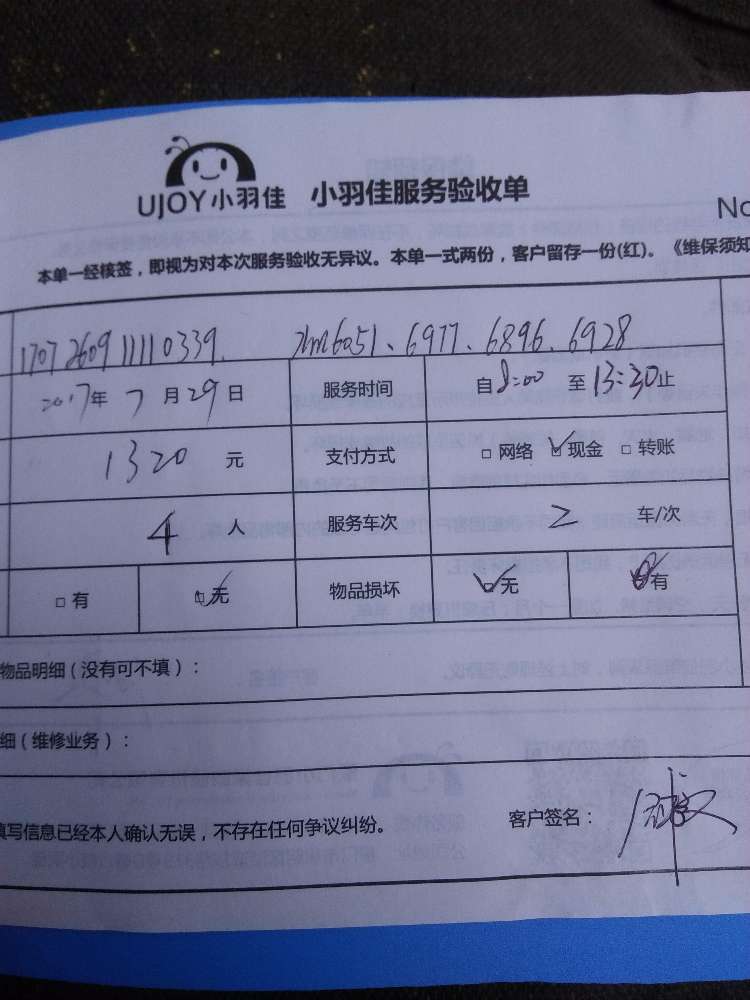 UJOY小羽佳 小羽佳服务验收单
No
本单一经核签，即视为对本次服务验收无异议。本单一式两份，客户留存一份(红)。《维保须知
1707260911110339. 6051、6977、6896、6928
2017年 7月29日 服务时间 自8:00 至13:30止
1320 元 支付方式 □网络 □现金 □转账
4 人 服务车次 2 车/次
□有 □无 物品损坏 □无 □有
物品明细（没有可不填）：
细（维修业务）：
填写信息已经本人确认无误，不存在任何争议纠纷。 客户签名：